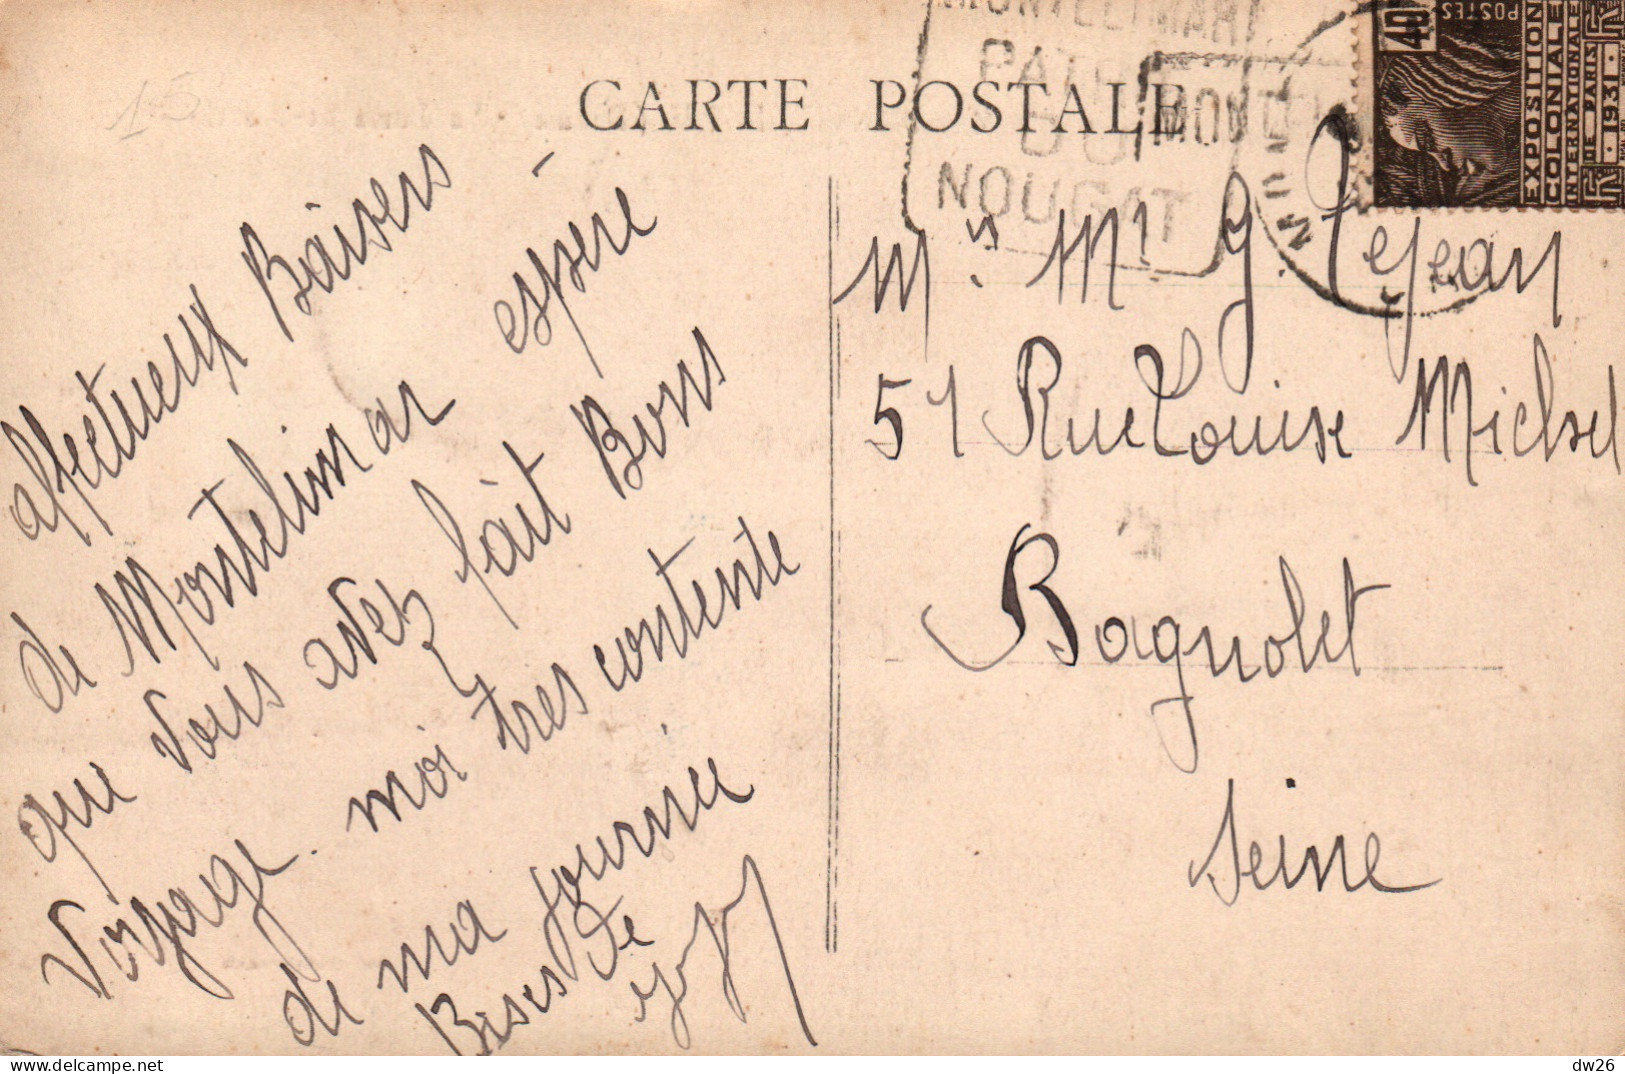 15
CARTE POSTALE
MONTELIMAR
PATRIE
DU
NOUGAT
MONTEL
40
POSTES
EXPOSITION
COLONIALE
INTERNATIONALE
DE PARIS
1931
affectueux Baisers
de Montelimar espère
que vous avez fait Bons
voyage. moi tres contente
de ma tournée
Bises de
Mrs Mm G. Lejean
51 Rue Louise Michel
Bagnolet
Seine
dw26